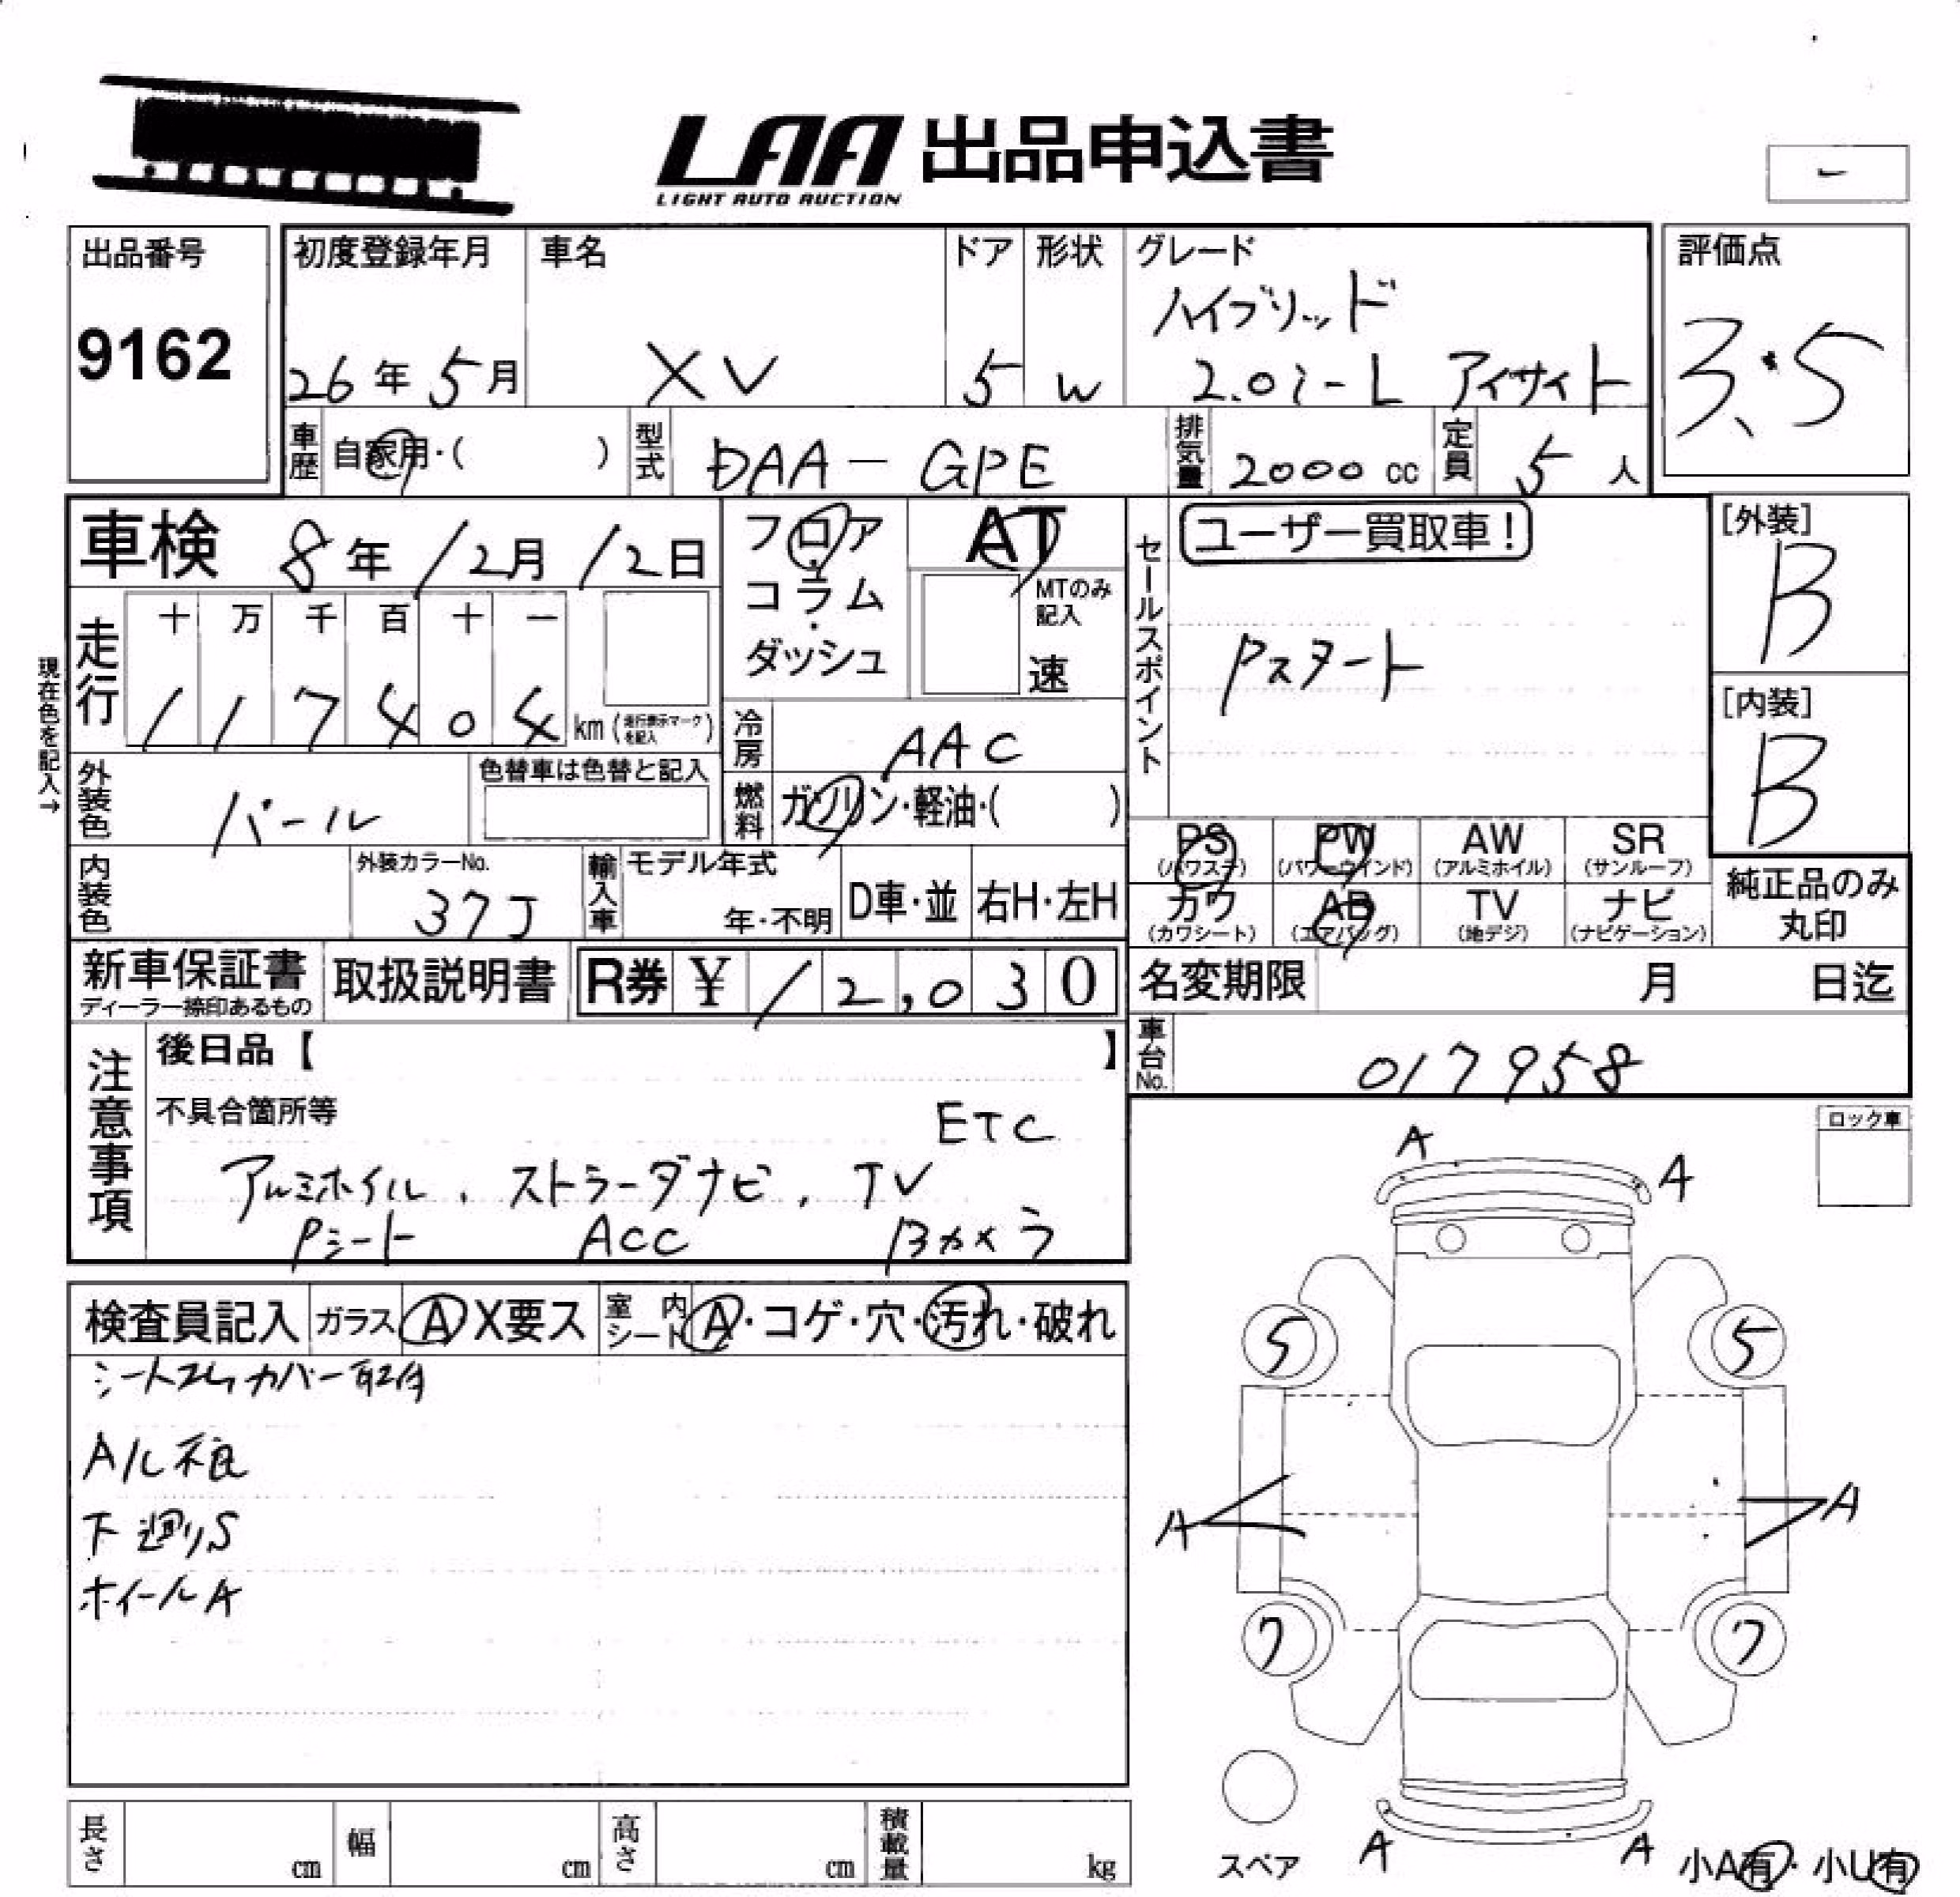 LAA 出品申込書
LIGHT AUTO AUCTION
出品番号
9162
初度登録年月
26年 5月
車名
XV
ドア
5
形状
W
グレード
ハイブリッド
2.0i-L アイサイト
評価点
3.5
車歴 自家用・( )
型式 DAA-GPE
排気量 2000 cc
定員 5 人
車検 8年 12月 12日
フロア・コラム・ダッシュ
AT
MTのみ記入
速
セールスポイント
ユーザー買取車!
Pスタート
[外装]
B
[内装]
B
現在色を記入→
走行
十 万 千 百 十 一
1 1 7 4 0 4 km (走行表示マークを記入)
冷房 AAC
外装色 パール
色替車は色替と記入
燃料 ガソリン・軽油・( )
内装色
外装カラーNo.
37J
輸入車
モデル年式
年・不明
D車・並
右H・左H
PS (パワステ)
PW (パワーウインド)
AW (アルミホイル)
SR (サンルーフ)
カワ (カワシート)
AB (エアバッグ)
TV (地デジ)
ナビ (ナビゲーション)
純正品のみ
丸印
新車保証書
ディーラー捺印あるもの
取扱説明書
R券 ¥ 12,030
名変期限 月 日迄
車台No. 017958
注意事項
後日品【 】
不具合箇所等
ETC
アルミホイル、ストラーダナビ、TV
Pシート ACC Bカメラ
ロック車
検査員記入
ガラス A X要ス
室内シート A・コゲ・穴・汚れ・破れ
シート カバー取付
A/L不良
下廻りS
ホイールA
A A
5 5
A A
7 7
スペア
A A
小A有・小U有
長さ cm
幅 cm
高さ cm
積載量 kg